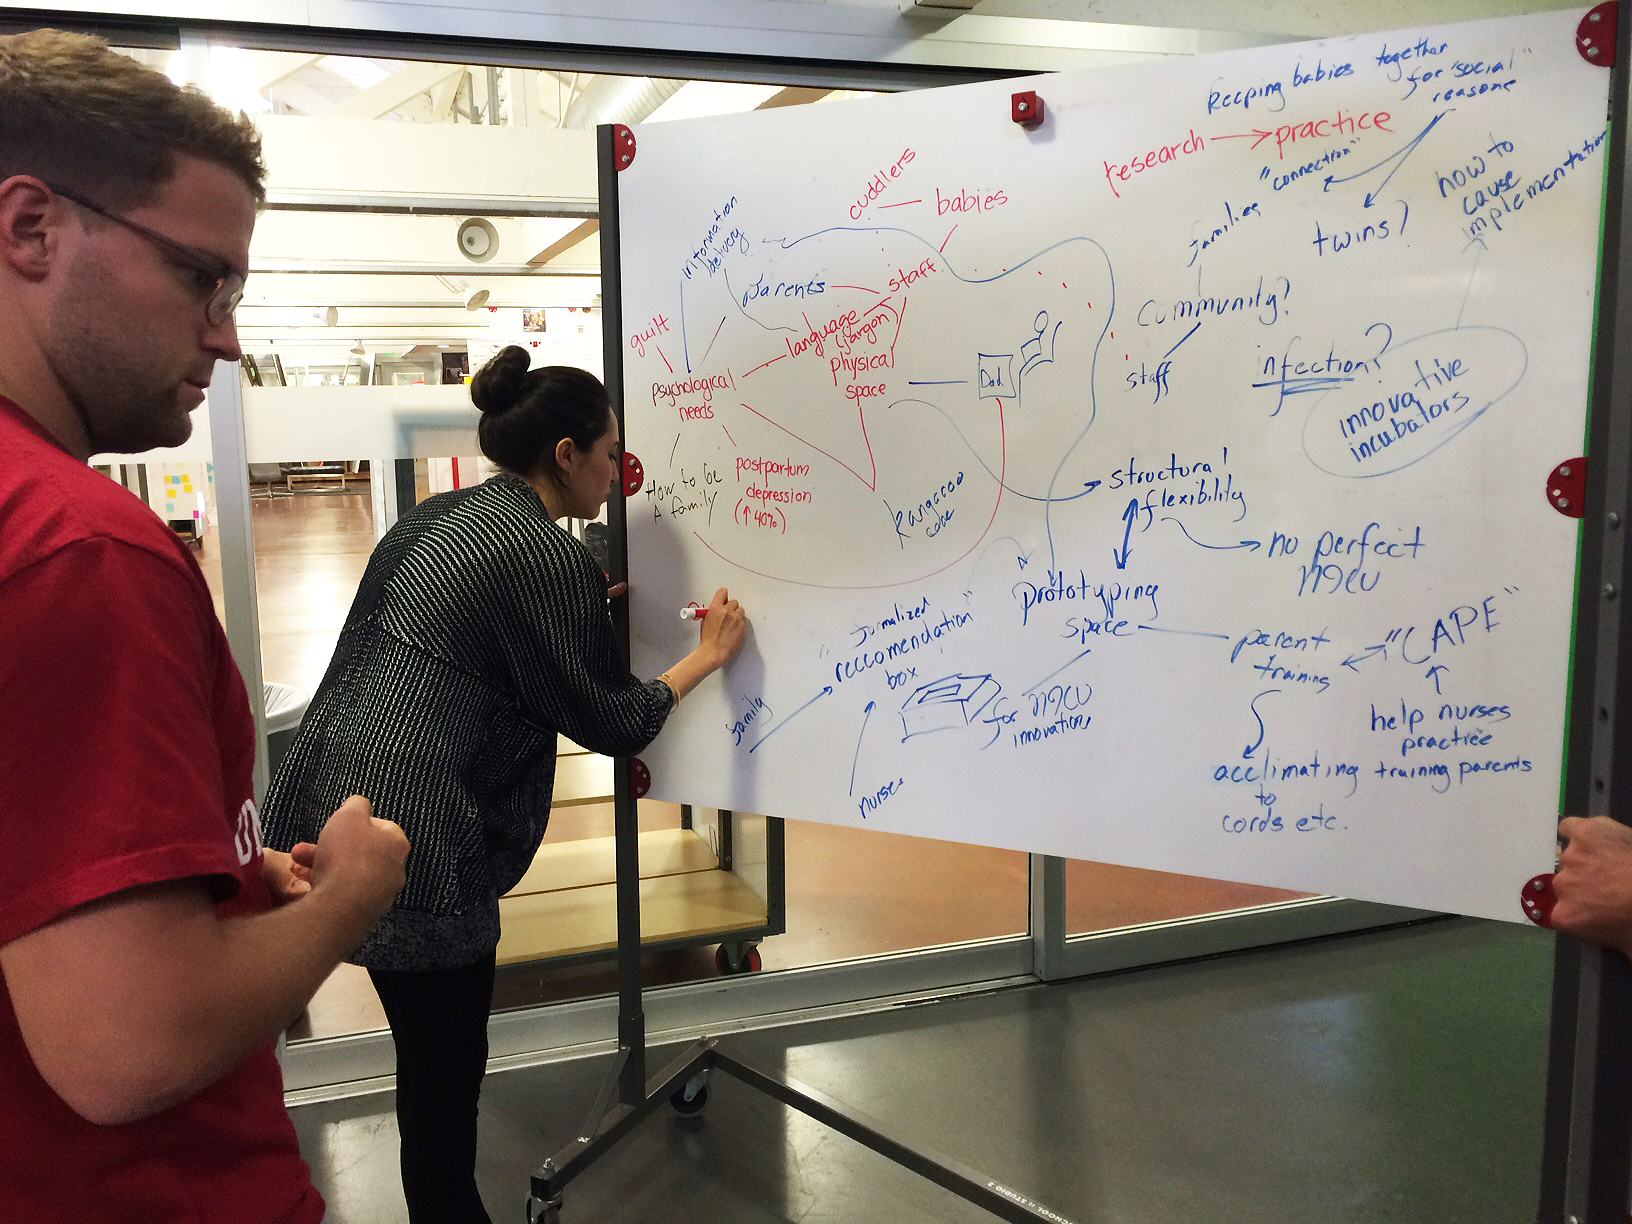 keeping babies together
for "social"
reasons
research → practice
"connection"
families
twins?
how to
cause
implementation
community?
staff
infection?
innovative
incubators
cuddlers — babies
information
delivery
parents
staff
guilt
language
(jargon)
physical
space
psychological
needs
Dad
How to be
A family
postpartum
depression
(↑ 40%)
kangaroo
care
structural
flexibility
no perfect
NICU
prototyping
space
"formalized
reccomendation"
box
family
nurses
for NICU
innovations
parent
training
"CAPE"
help nurses
practice
training parents
acclimating
to
cords etc.